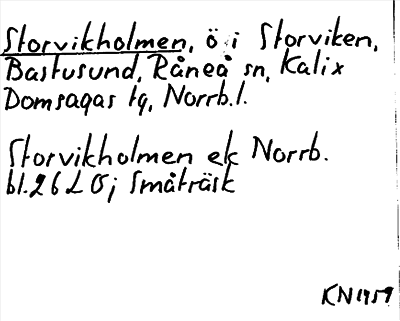 Storvikholmen, ö i Storviken,
Bastusund, Råneå sn, Kalix
Domsagas tg, Norrb.l.
Storvikholmen ek Norrb.
bl. 26 L Ö; Småträsk
KN 1959